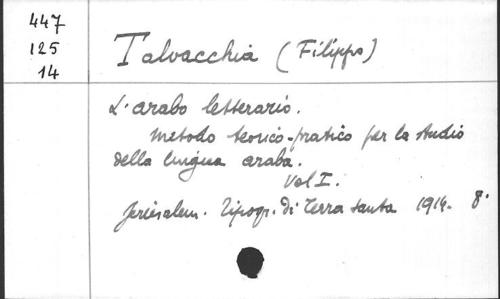 447
125
14
Talvacchia (Filippo)
L'arabo letterario.
Metodo teorico-pratico per lo studio
della lingua araba.
Vol I.
Jerusalem. Tipogr. di Terra Santa 1914. 8°